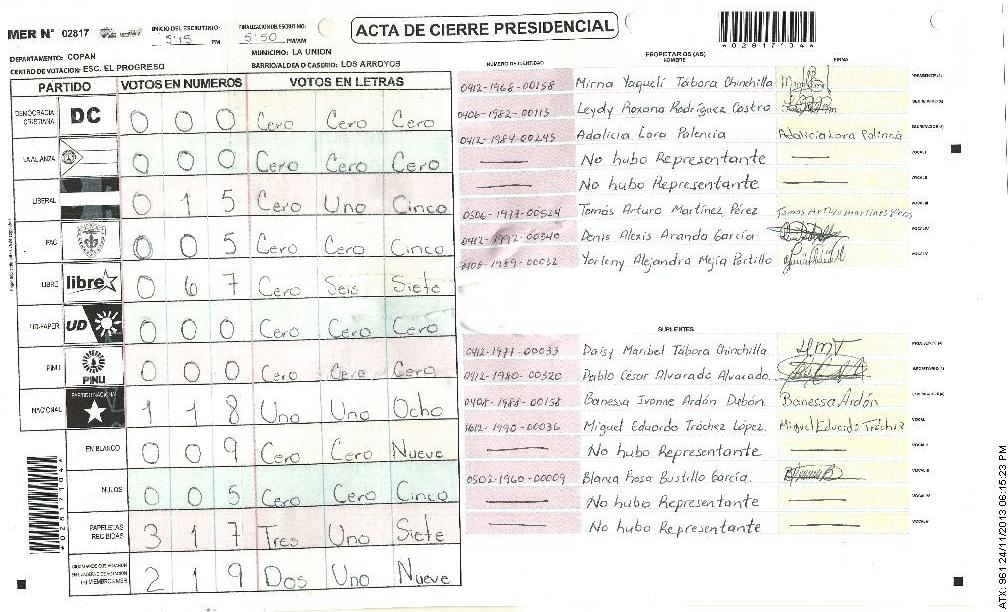 MER N° 02817
INICIO DEL ESCRUTINIO: 5:15 PM
FINALIZACION DEL ESCRUTINIO: 5:50 PM/AM
ACTA DE CIERRE PRESIDENCIAL
*02817104*
DEPARTAMENTO: COPAN
MUNICIPIO: LA UNION
CENTRO DE VOTACION: ESC. EL PROGRESO
BARRIO/ALDEA O CASERIO: LOS ARROYOS
PARTIDO VOTOS EN NUMEROS VOTOS EN LETRAS
DEMOCRACIA CRISTIANA DC 0 0 0 Cero Cero Cero
LA ALIANZA 0 0 0 Cero Cero Cero
LIBERAL 0 1 5 Cero Uno Cinco
PAC 0 0 5 Cero Cero Cinco
LIBRE libre 0 6 7 Cero Seis Siete
UD-FAPER UD 0 0 0 Cero Cero Cero
PINU PINU 0 0 0 Cero Cero Cero
NACIONAL PARTIDO NACIONAL 1 1 8 Uno Uno Ocho
EN BLANCO 0 0 9 Cero Cero Nueve
NULOS 0 0 5 Cero Cero Cinco
PAPELETAS RECIBIDAS 3 1 7 Tres Uno Siete
CIUDADANOS QUE VOTARON EN CUADERNO DE VOTACION (+) MIEMBROS MER 2 1 9 Dos Uno Nueve
*028171104*
NUMERO DE IDENTIDAD PROPIETARIOS (AS) NOMBRE FIRMA
0412-1968-00158 Mirna Yaquelí Tábora Chinchilla PRESIDENTE (A)
0406-1982-00113 Leydy Roxana Rodríguez Castro SECRETARIO (A)
0412-1984-00245 Adalicia Lara Palencia Adalicia Lara Palencia ESCRUTADOR (A)
No hubo Representante VOCAL I
No hubo Representante VOCAL II
0506-1977-00524 Tomás Arturo Martínez Pérez Tomas Arturo martines Peres VOCAL III
0412-1992-00340 Denis Alexis Aranda García VOCAL IV
0408-1989-00032 Yorleny Alejandra Mejía Portillo VOCAL V
SUPLENTES
0412-1971-00033 Daisy Maribel Tábora Chinchilla PRESIDENTE (A)
0412-1980-00320 Pablo César Alvarado Alvarado. SECRETARIO (A)
0408-1988-00158 Banessa Ivonne Ardón Dubón. Banessa Ardón ESCRUTADOR (A)
1612-1990-00036 Miguel Eduardo Tróchez López. Miguel Eduardo Tróchez VOCAL I
No hubo Representante VOCAL II
0502-1960-00009 Blanca Rosa Bustillo García. VOCAL III
No hubo Representante VOCAL IV
No hubo Representante VOCAL V
ATX: 961 24/11/2013 06:15:23 PM